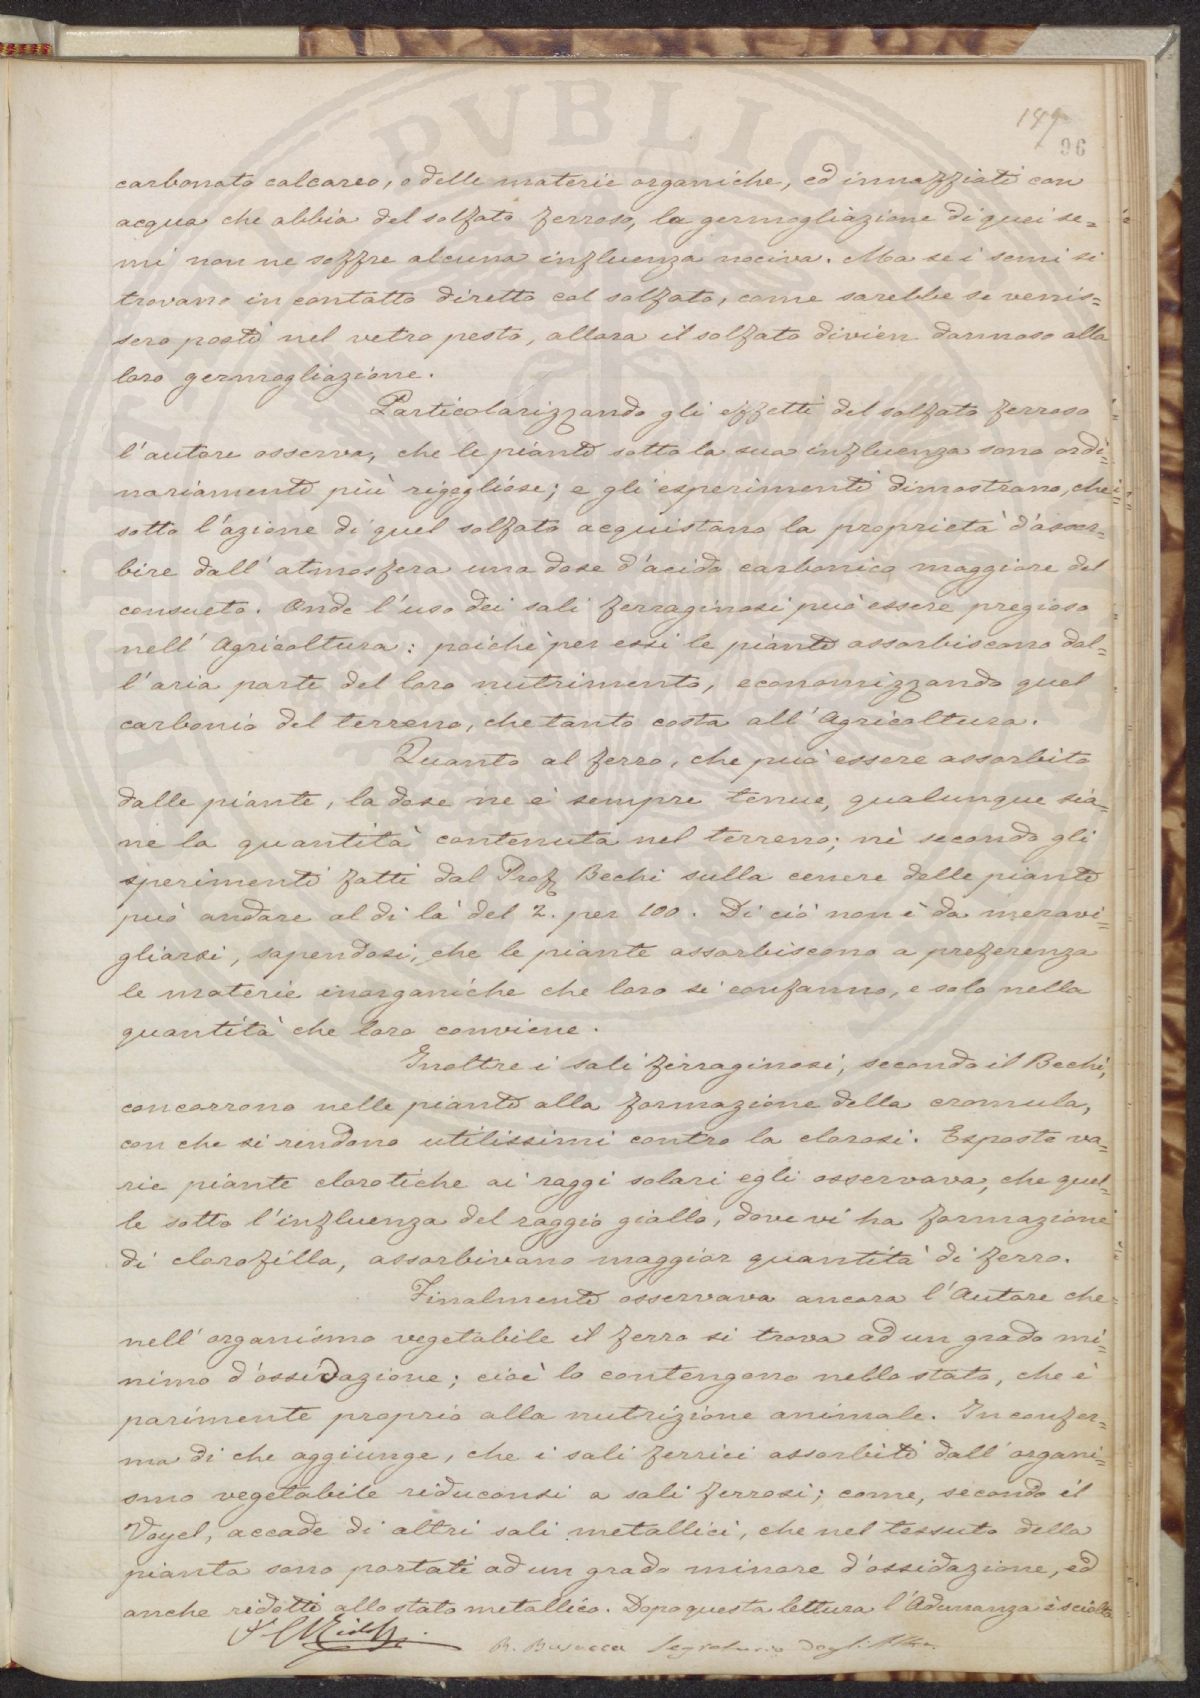 149
96
carbonato calcareo, o delle materie organiche, ed innaffiati con
acqua che abbia del solfato ferroso, la germogliazione di quei se=
mi non ne soffre alcuna influenza nociva. Ma se i semi si
trovano in contatto diretto col solfato, come sarebbe se venis=
sero posti nel vetro pesto, allora il solfato divien dannoso alla
loro germogliazione.
Particolarizzando gli effetti del solfato ferroso
l'autore osserva, che le piante sotto la sua influenza sono ordi=
nariamente più rigogliose; e gli esperimenti dimostrano, che
sotto l'azione di quel solfato acquistano la proprietà d'assor=
bire dall'atmosfera una dose d'acido carbonico maggiore del
consueto. Onde l'uso dei sali ferruginosi può essere pregioso
nell'Agricoltura: poichè per essi le piante assorbiscono dal=
l'aria parte del loro nutrimento, economizzando quel
carbonio del terreno, che tanto costa all'Agricoltura.
Quanto al ferro, che può essere assorbito
dalle piante, la dose ne è sempre tenue, qualunque sia=
ne la quantità contenuta nel terreno; nè secondo gli
sperimenti fatti dal Prof Bechi sulla cenere delle piante
può andare al di là del 2. per 100. Di ciò non è da meravi=
gliarsi, sapendosi, che le piante assorbiscono a preferenza
le materie inorganiche che loro si confanno, e solo nella
quantità che loro conviene.
Inoltre i sali ferraginosi, secondo il Bechi,
concorrono nelle piante alla formazione della cromula,
con che si rendono utilissimi contro la clorosi. Esposte va=
rie piante clorotiche ai raggi solari egli osservava, che quel=
le sotto l'influenza del raggio giallo, dove vi ha formazione
di clorofilla, assorbivano maggior quantità di ferro.
Finalmente osservava ancora l'Autore che
nell'organismo vegetabile il ferro si trova ad un grado mi=
nimo d'ossidazione; cioè lo contengono nello stato, che è
parimente proprio alla nutrizione animale. In confer=
ma di che aggiunge, che i sali ferrici assorbiti dall'organi=
smo vegetabile riduconsi a sali ferrosi; come, secondo il
Vogel, accade di altri sali metallici, che nel tessuto della
pianta sono portati ad un grado minore d'ossidazione, ed
anche ridotti allo stato metallico. Dopo questa lettura l'Adunanza è sciolta
R. Busacca Segretario degli Atti.